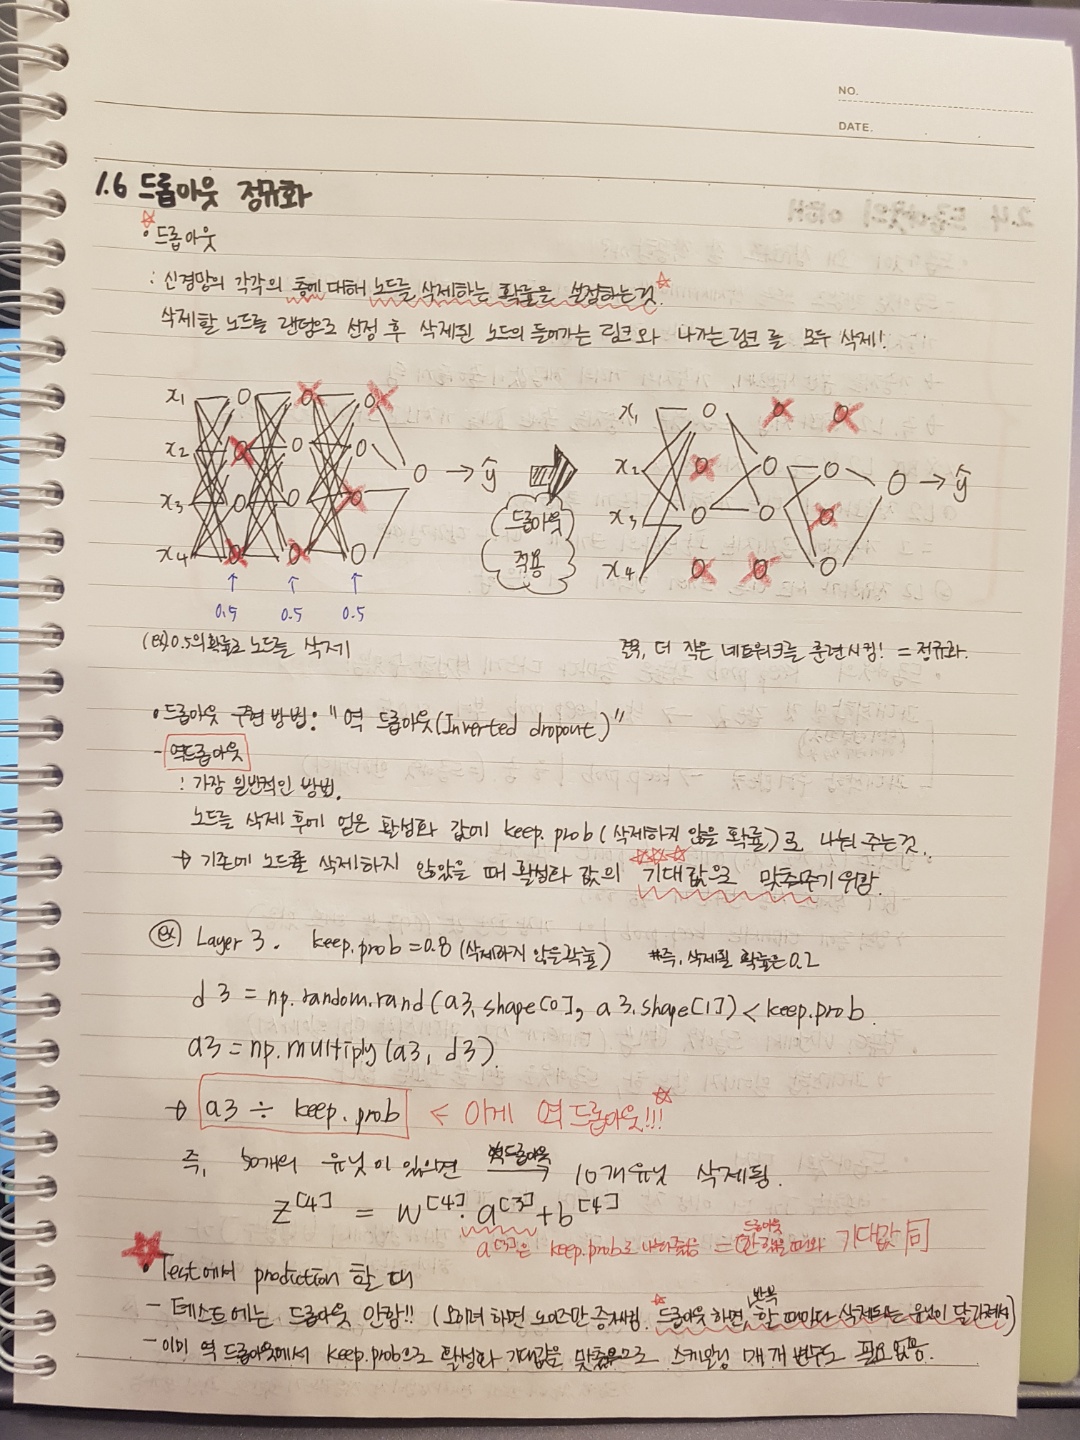 NO.
DATE.
1.6 드롭아웃 정규화
• 드롭아웃
: 신경망의 각각의 층에 대해 노드를 삭제하는 확률을 설정하는것.
삭제할 노드를 랜덤으로 선정 후 삭제된 노드의 들어가는 링크와 나가는 링크를 모두 삭제!
x1
x2
x3
x4
→ ŷ
0.5 0.5 0.5
드롭아웃
적용
x1
x2
x3
x4
→ ŷ
(ex) 0.5의 확률로 노드를 삭제
결국, 더 작은 네트워크를 훈련시킴! = 정규화.
• 드롭아웃 구현 방법: "역 드롭아웃(Inverted dropout)"
- 역드롭아웃
: 가장 일반적인 방법.
노드를 삭제 후에 얻은 활성화 값에 keep.prob(삭제하지 않을 확률)로 나눠 주는것.
→ 기존에 노드를 삭제하지 않았을 때 활성화 값의 기대값으로 맞춰주기 위함.
(ex) Layer 3. keep.prob = 0.8 (삭제하지 않을확률) #즉, 삭제될 확률은 0.2
d3 = np.random.rand(a3.shape[0], a3.shape[1]) < keep.prob
a3 = np.multiply(a3, d3)
→ a3 ÷ keep.prob ← 이게 역 드롭아웃!!!
즉, 50개의 유닛이 있으면 역드롭아웃 10개유닛 삭제됨.
z[4] = w[4]· a[3] + b[4]
a[3]은 keep.prob로 나눠줬음 = 드롭아웃 안 했을 때와 기대값 同
• Test에서 prediction 할 때
- 테스트에는 드롭아웃 안함!! (오히려 하면 노이즈만 증가시킴. 드롭아웃 하면, 반복 할 때마다 삭제되는 유닛이 달라져서)
- 이미 역 드롭아웃에서 keep.prob으로 활성화 기대값을 맞췄으므로 스케일링 매개 변수도 필요없음.